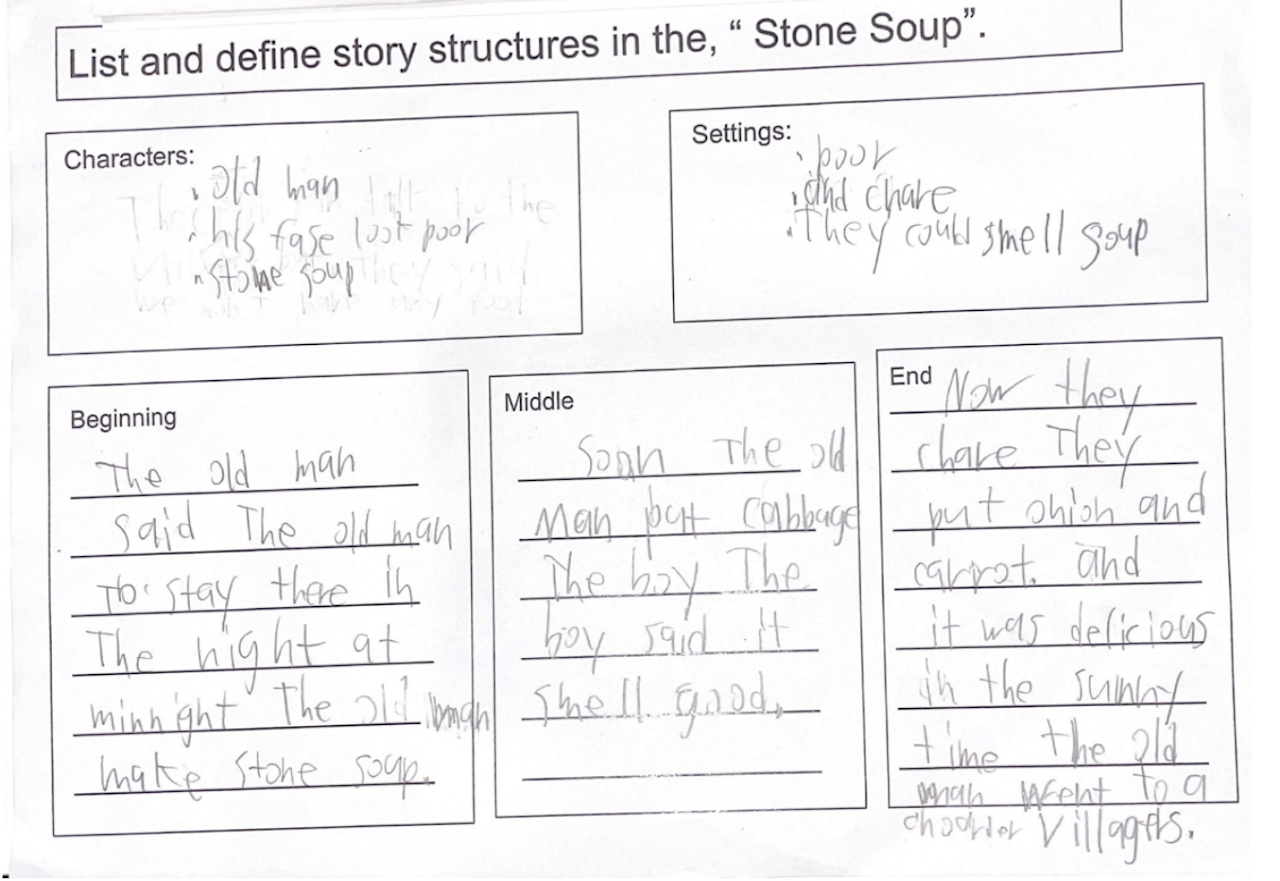 List and define story structures in the, “ Stone Soup”.
Characters:
. Old man
. his fase loot poor
. Stone soup
Settings:
. poor
. and chare
. They could smell soup
Beginning
The old man
said The old man
To stay there in
The night at
minnight The old man
make stone soup.
Middle
Soon The old
Man put cabbage
The boy The
boy said it
smell good.
End Now they
chare They
put onion and
carrot. and
it was delicious
in the sunny
time the old
man went to a
Villagers.